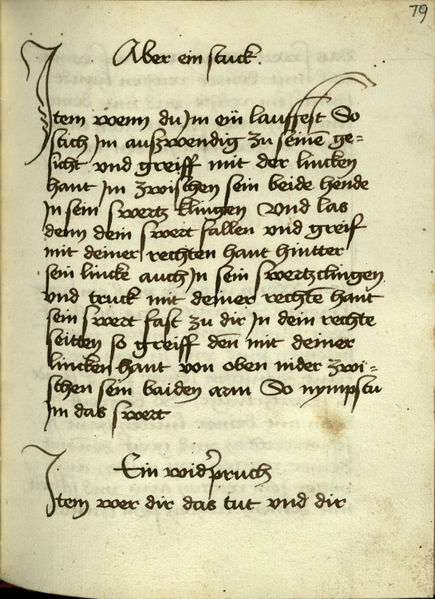 79
Aber ein stuck.
Item wenn du Im ein lauffest So
stich Im auszwendig zu seinē ge=
sicht vnd greiff mit der lincken
hant Im zwischen sein beide hende
In sein swertz klingen Vnd las
denn dein swert fallen vnd greif
mit deiner rechten hant hintter
sein lincke auch In sein swertzclingen
vnd truck mit deiner rechtē hant
sein swert fast zu dir In dein rechte
seitten so greiff den mit deiner
lincken hant von oben nider zwi=
schen sein baiden arm So nympstu
Im das swert
Ein widerpruch
Item wer dir das tut vnd dir